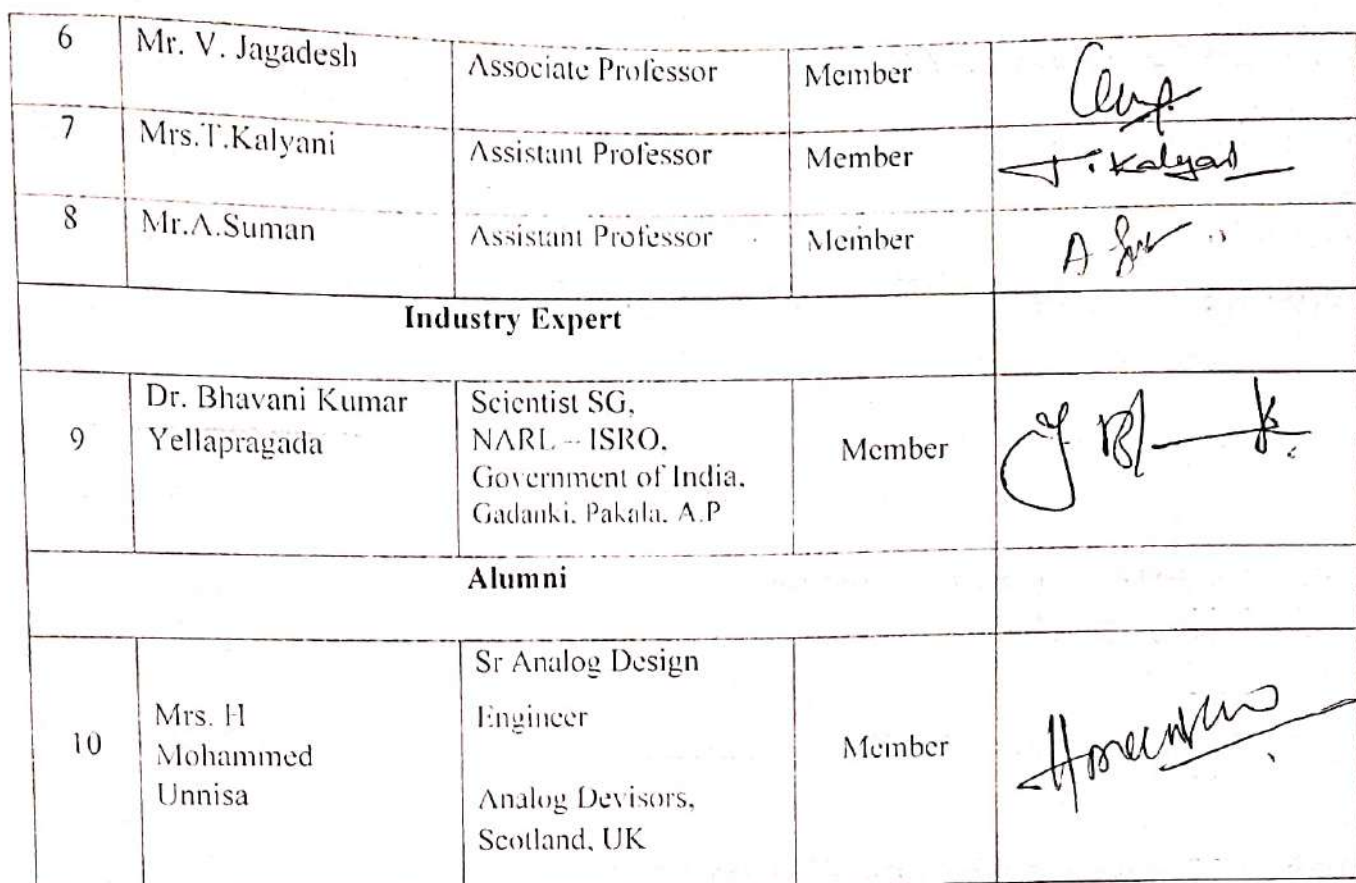 6 Mr. V. Jagadesh Associate Professor Member
7 Mrs.T.Kalyani Assistant Professor Member T. Kalyani
8 Mr.A.Suman Assistant Professor Member A
Industry Expert
9 Dr. Bhavani Kumar Yellapragada Scientist SG,
NARL – ISRO,
Government of India,
Gadanki, Pakala, A.P Member
Alumni
10 Mrs. H
Mohammed
Unnisa Sr Analog Design
Engineer
Analog Devisors,
Scotland, UK Member